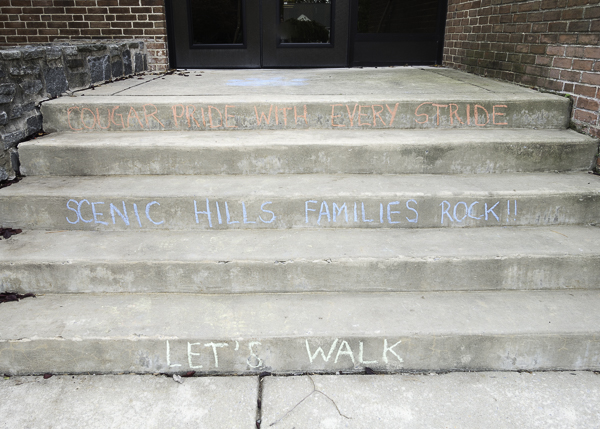 COUGAR PRIDE WITH EVERY STRIDE
SCENIC HILLS FAMILIES ROCK!!
LET'S WALK